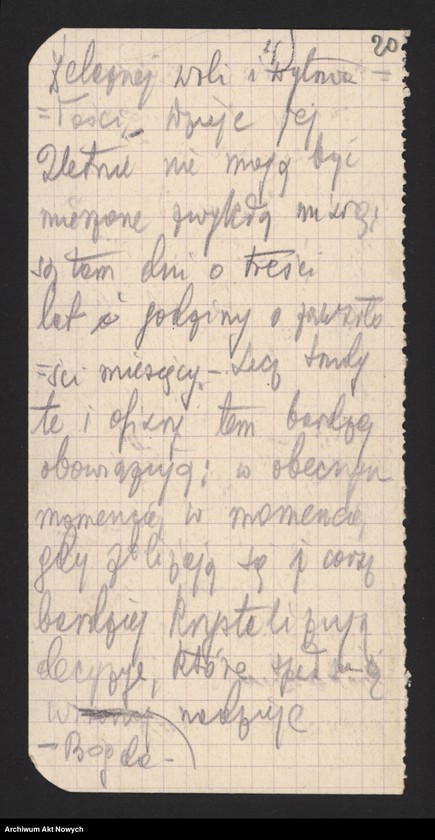 20
żelaznej woli i wytrwa=
=łości, dzieje jej
2letnie nie mogą być
mierzone zwykłą miarą;
są tam dni o treści
lat i godziny o zawarto
=ści miesięcy. – Lecz trudy
te i ofiary tem bardziej
obowiązują; w obecnym
momencie, w momencie,
gdy zbliżają się i coraz
bardziej krystalizują
decyzje, które spełnią
nadzieje
– Bogda –
Archiwum Akt Nowych